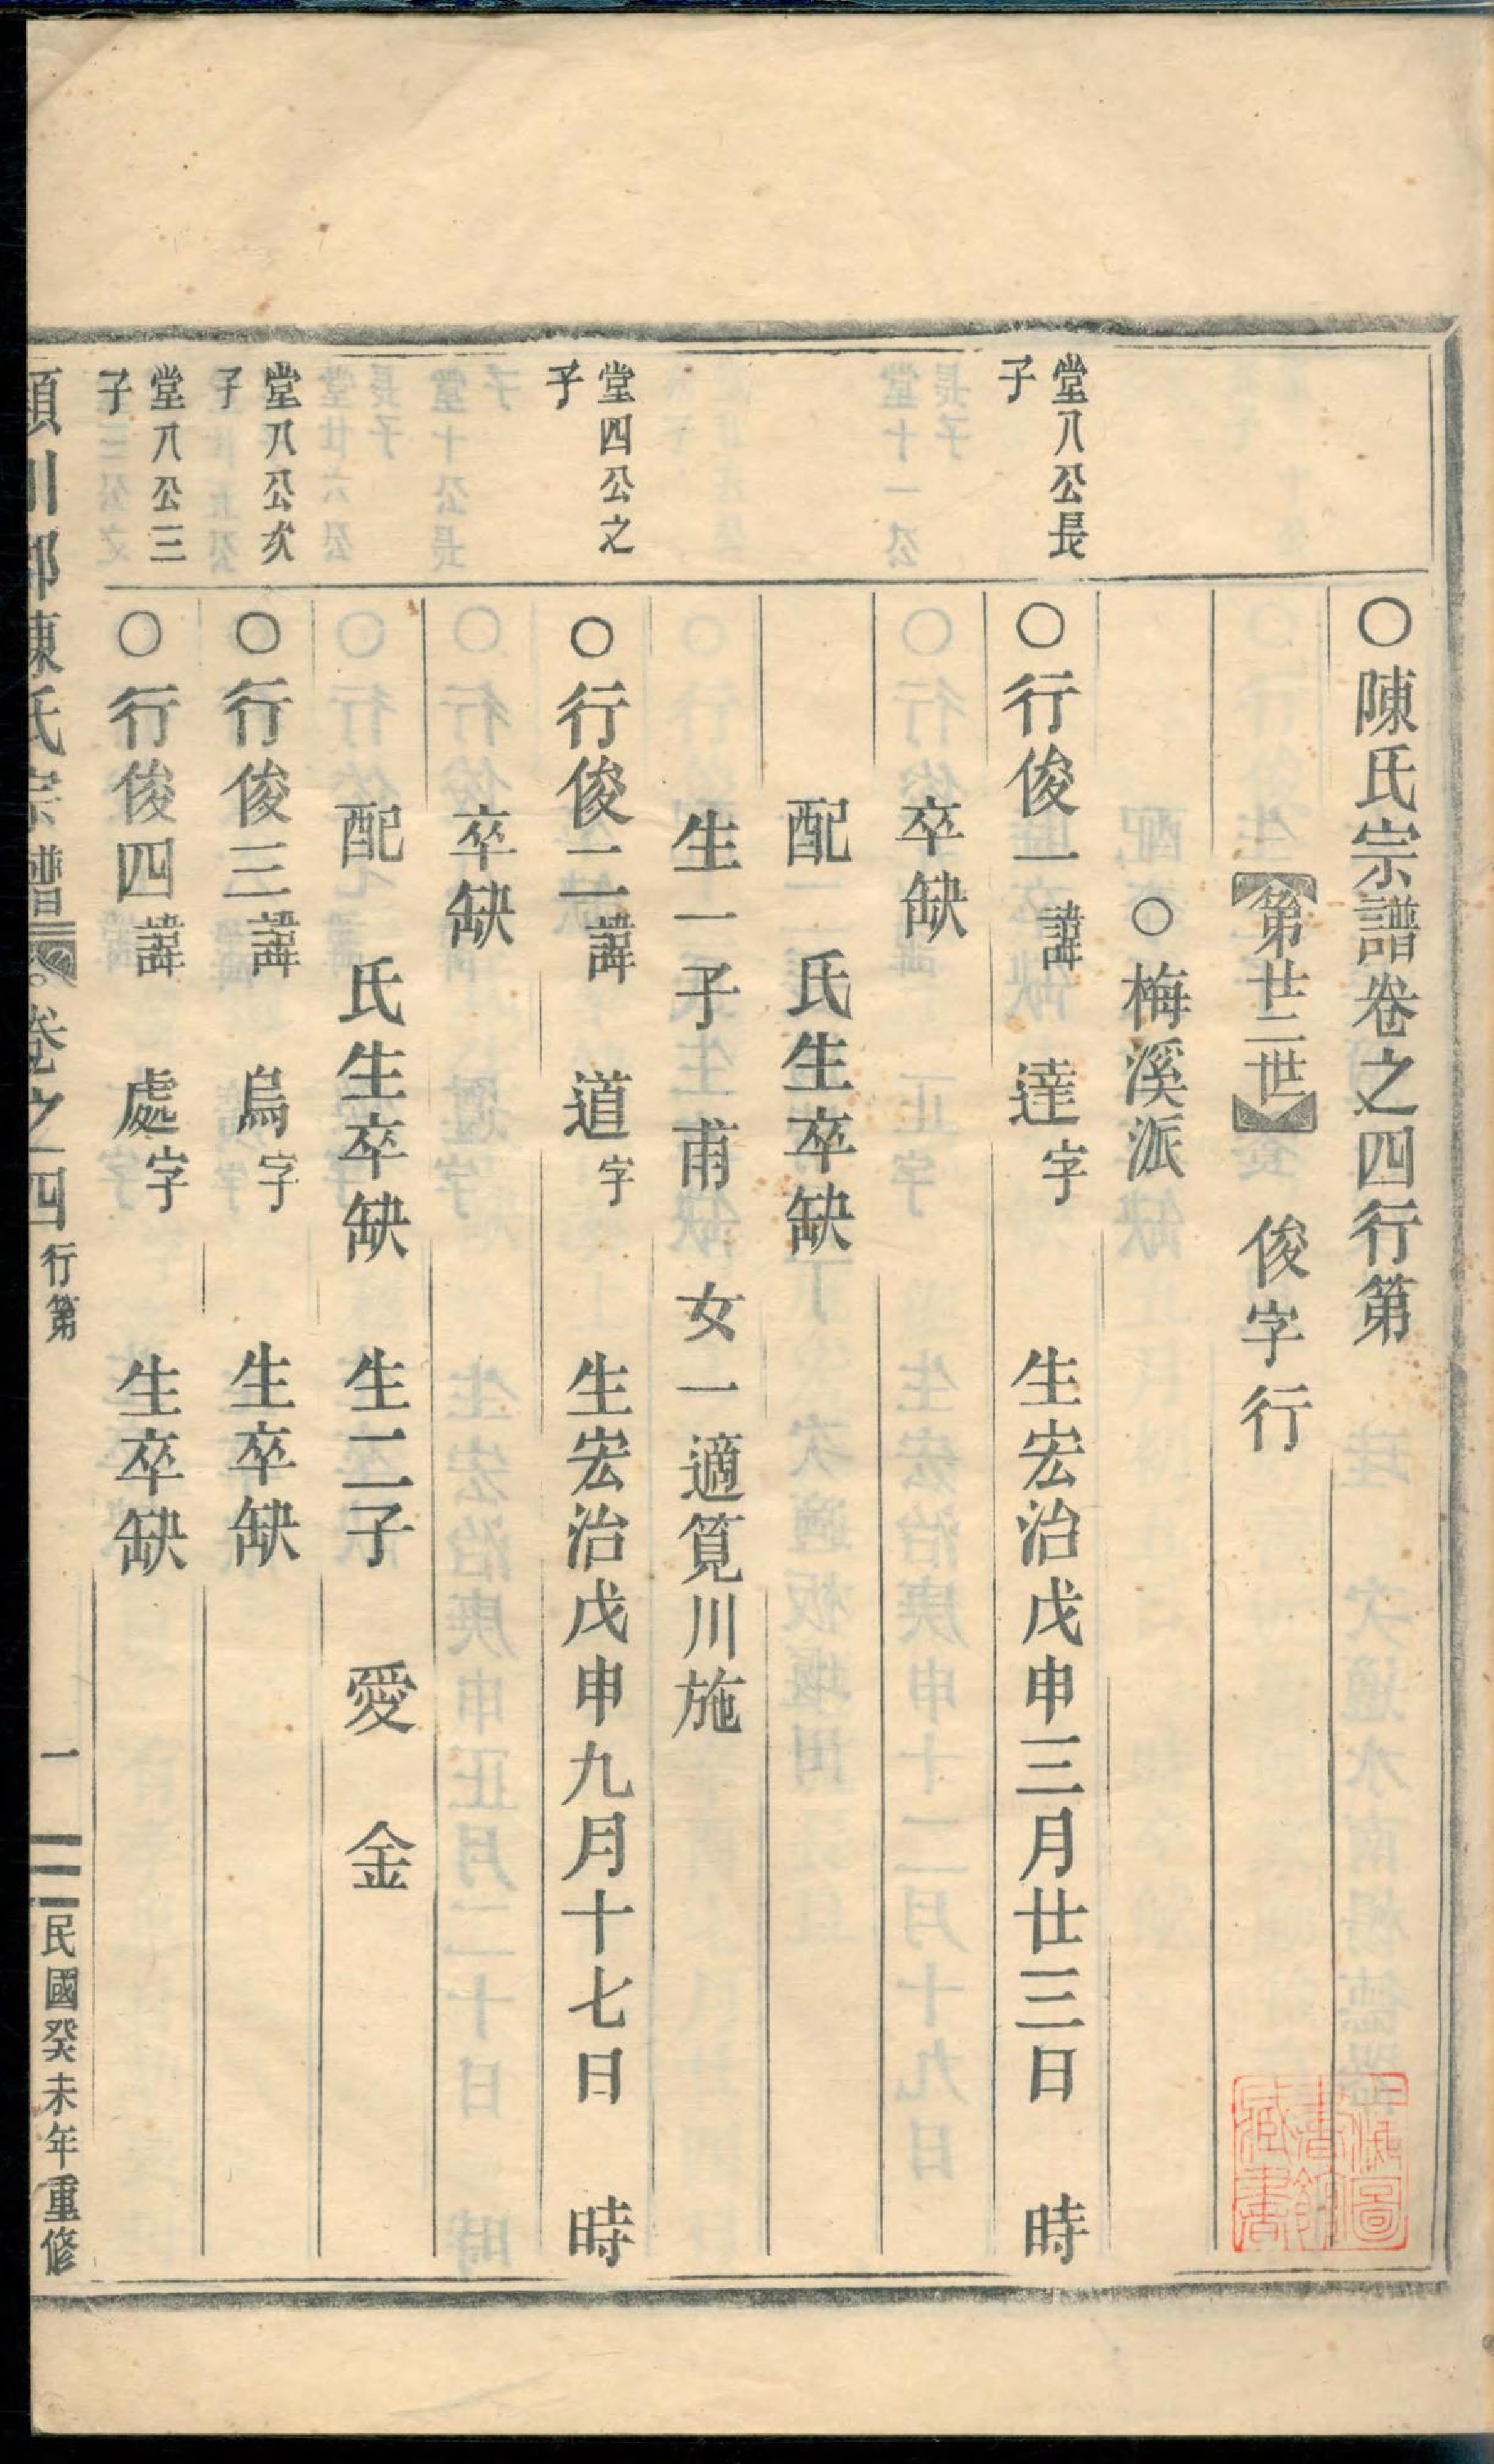 〇陳氏宗譜卷之四行第
【第廿二世】　俊字行
〇梅溪派
堂八公長子
〇行俊一諱　達字　生宏治戊申三月廿三日　時
卒缺
配　氏生卒缺
生一子　甫　女一適筧川施
堂四公之子
〇行俊二諱　道字　生宏治戊申九月十七日　時
卒缺
配　氏生卒缺　生二子　愛　金
堂八公次子
〇行俊三諱　烏字　生卒缺
堂八公三子
〇行俊四諱　處字　生卒缺
潁川郡陳氏宗譜　卷之四　行第　一　民國癸未年重修
上海圖書館藏書